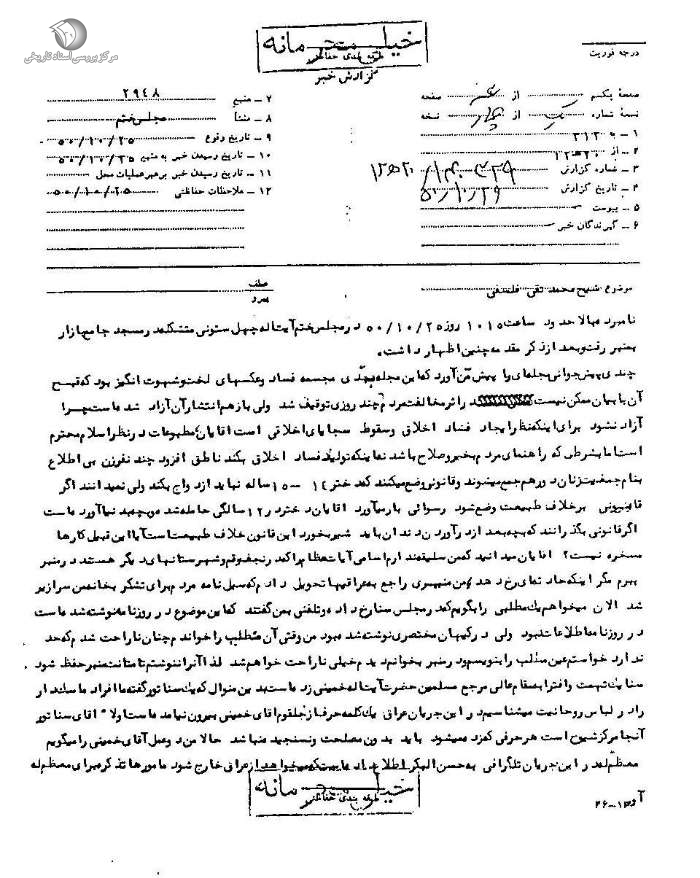 مرکز بررسی اسناد تاریخی
خیلی محرمانه
طبقه بندی حفاظتی
گزارش خبر
درجه فوریت
صفحه یکم از صفحه
نسخه شماره یک از چهار نسخه
۱ ــ
۲ ــ از
۳ ــ شماره گزارش
۴ ــ تاریخ گزارش ۵۰/۱۰/۲۹
۵ ــ پیوست
۶ ــ گیرندگان خبر
۷ ــ منبع ۲۹۴۸
۸ ــ منشأ مجلس ختم
۹ ــ تاریخ وقوع ۵۰/۱۰/۲۵
۱۰ ــ تاریخ رسیدن خبر به منبع ۵۰/۱۰/۲۵
۱۱ ــ تاریخ رسیدن خبر برهبر عملیات محل
۱۲ ــ ملاحظات حفاظتی ۵۰/۱۰/۲۵
موضوع شیخ محمد تقی فلسفی
عطف
پیرو
نامبرده بالا حدود ساعت ۱۰۱۵ روز ۵۰/۱۰/۲۵ در مجلس ختم آیت اله چهل ستونی متشکله در مسجد جامع بازار
بمنبر رفت و بعد از ذکر مقدمه چنین اظهار داشت.
چندی پیش جوانی مجله‌ای را پیش من آورد که این مجله مجسمه فساد و عکسهای لخت و شهوت انگیز بود که قبح
آن با بیان ممکن نیست در اثر مخالفت مردم چند روزی توقیف شد ولی باز هم انتشار آن آزاد شده است چرا
آزاد نشود برای اینکه نظر ایجاد فساد اخلاق و سقوط سجایای اخلاقی است آقایان مطبوعات در نظر اسلام محترم
است اما بشرطی که راهنمای مردم بخیر و صلاح باشد نه اینکه تولید فساد اخلاق بکند ناطق افزود چند نفر زن بی اطلاع
بنام جمعیت زنان دور هم جمع میشوند و قانونی وضع میکنند که دختر ۱۴ ــ ۱۵ ساله نباید ازدواج بکند ولی نمیدانند اگر
قانونی برخلاف طبیعت وضع شود رسوائی بار میآورد آقایان دختر در ۱۲ سالگی حامله شده و بچه بدنیا آورده است
اگر قانونی بگذرانند که بچه بعد از در آوردن دندان باید شیر بخورد این قانون خلاف طبیعت است آیا این قبیل کارها
مسخره نیست؟ آقایان میدانید که من سلیقه ندارم اسامی آیات عظام را که در نجف و قم و شهرستانهای دیگر هستند در منبر
ببرم مگر اینکه حادثه‌ای رخ دهد و من منبری راجع به عراقیها تحویل دادم که سیل نامه مردم برای تشکر بخانه من سرازیر
شد الان میخواهم یک مطلبی را بگویم که در مجلس سنا رخ داده و تلفنی بمن گفتند که این موضوع در روزنامه نوشته شده است
در روزنامه اطلاعات نبود ولی در کیهان مختصری نوشته شده بود من وقتی آن مطلب را خواندم چنان ناراحت شدم که حد
ندارد خواستم عین مطلب را بنویسم و در منبر بخوانم دیدم خیلی ناراحت خواهم شد لذا آنرا ننوشتم تا متانت منبر حفظ شود
سنا یک تهمت و افترا به مقام عالی مرجع مسلمین حضرت آیت اله خمینی زده است بدین منوال که یک سناتور گفته ما افراد
را در لباس روحانیت میشناسیم در این جریان عراق یک کلمه حرف از حلقوم آقای خمینی بیرون نیامده است اولا" آقای سناتور
آنجا مرکز شیوخ است هر حرفی که زده میشود باید بدون مصلحت و نسنجیده نباشد حالا من دو عمل آقای خمینی را میگویم
معظم له در این جریان تلگرافی به حسن البکر اطلاع داده است که میخواهد از عراق خارج شود مامورها تذکره برای معظم له
خیلی محرمانه
طبقه بندی حفاظتی